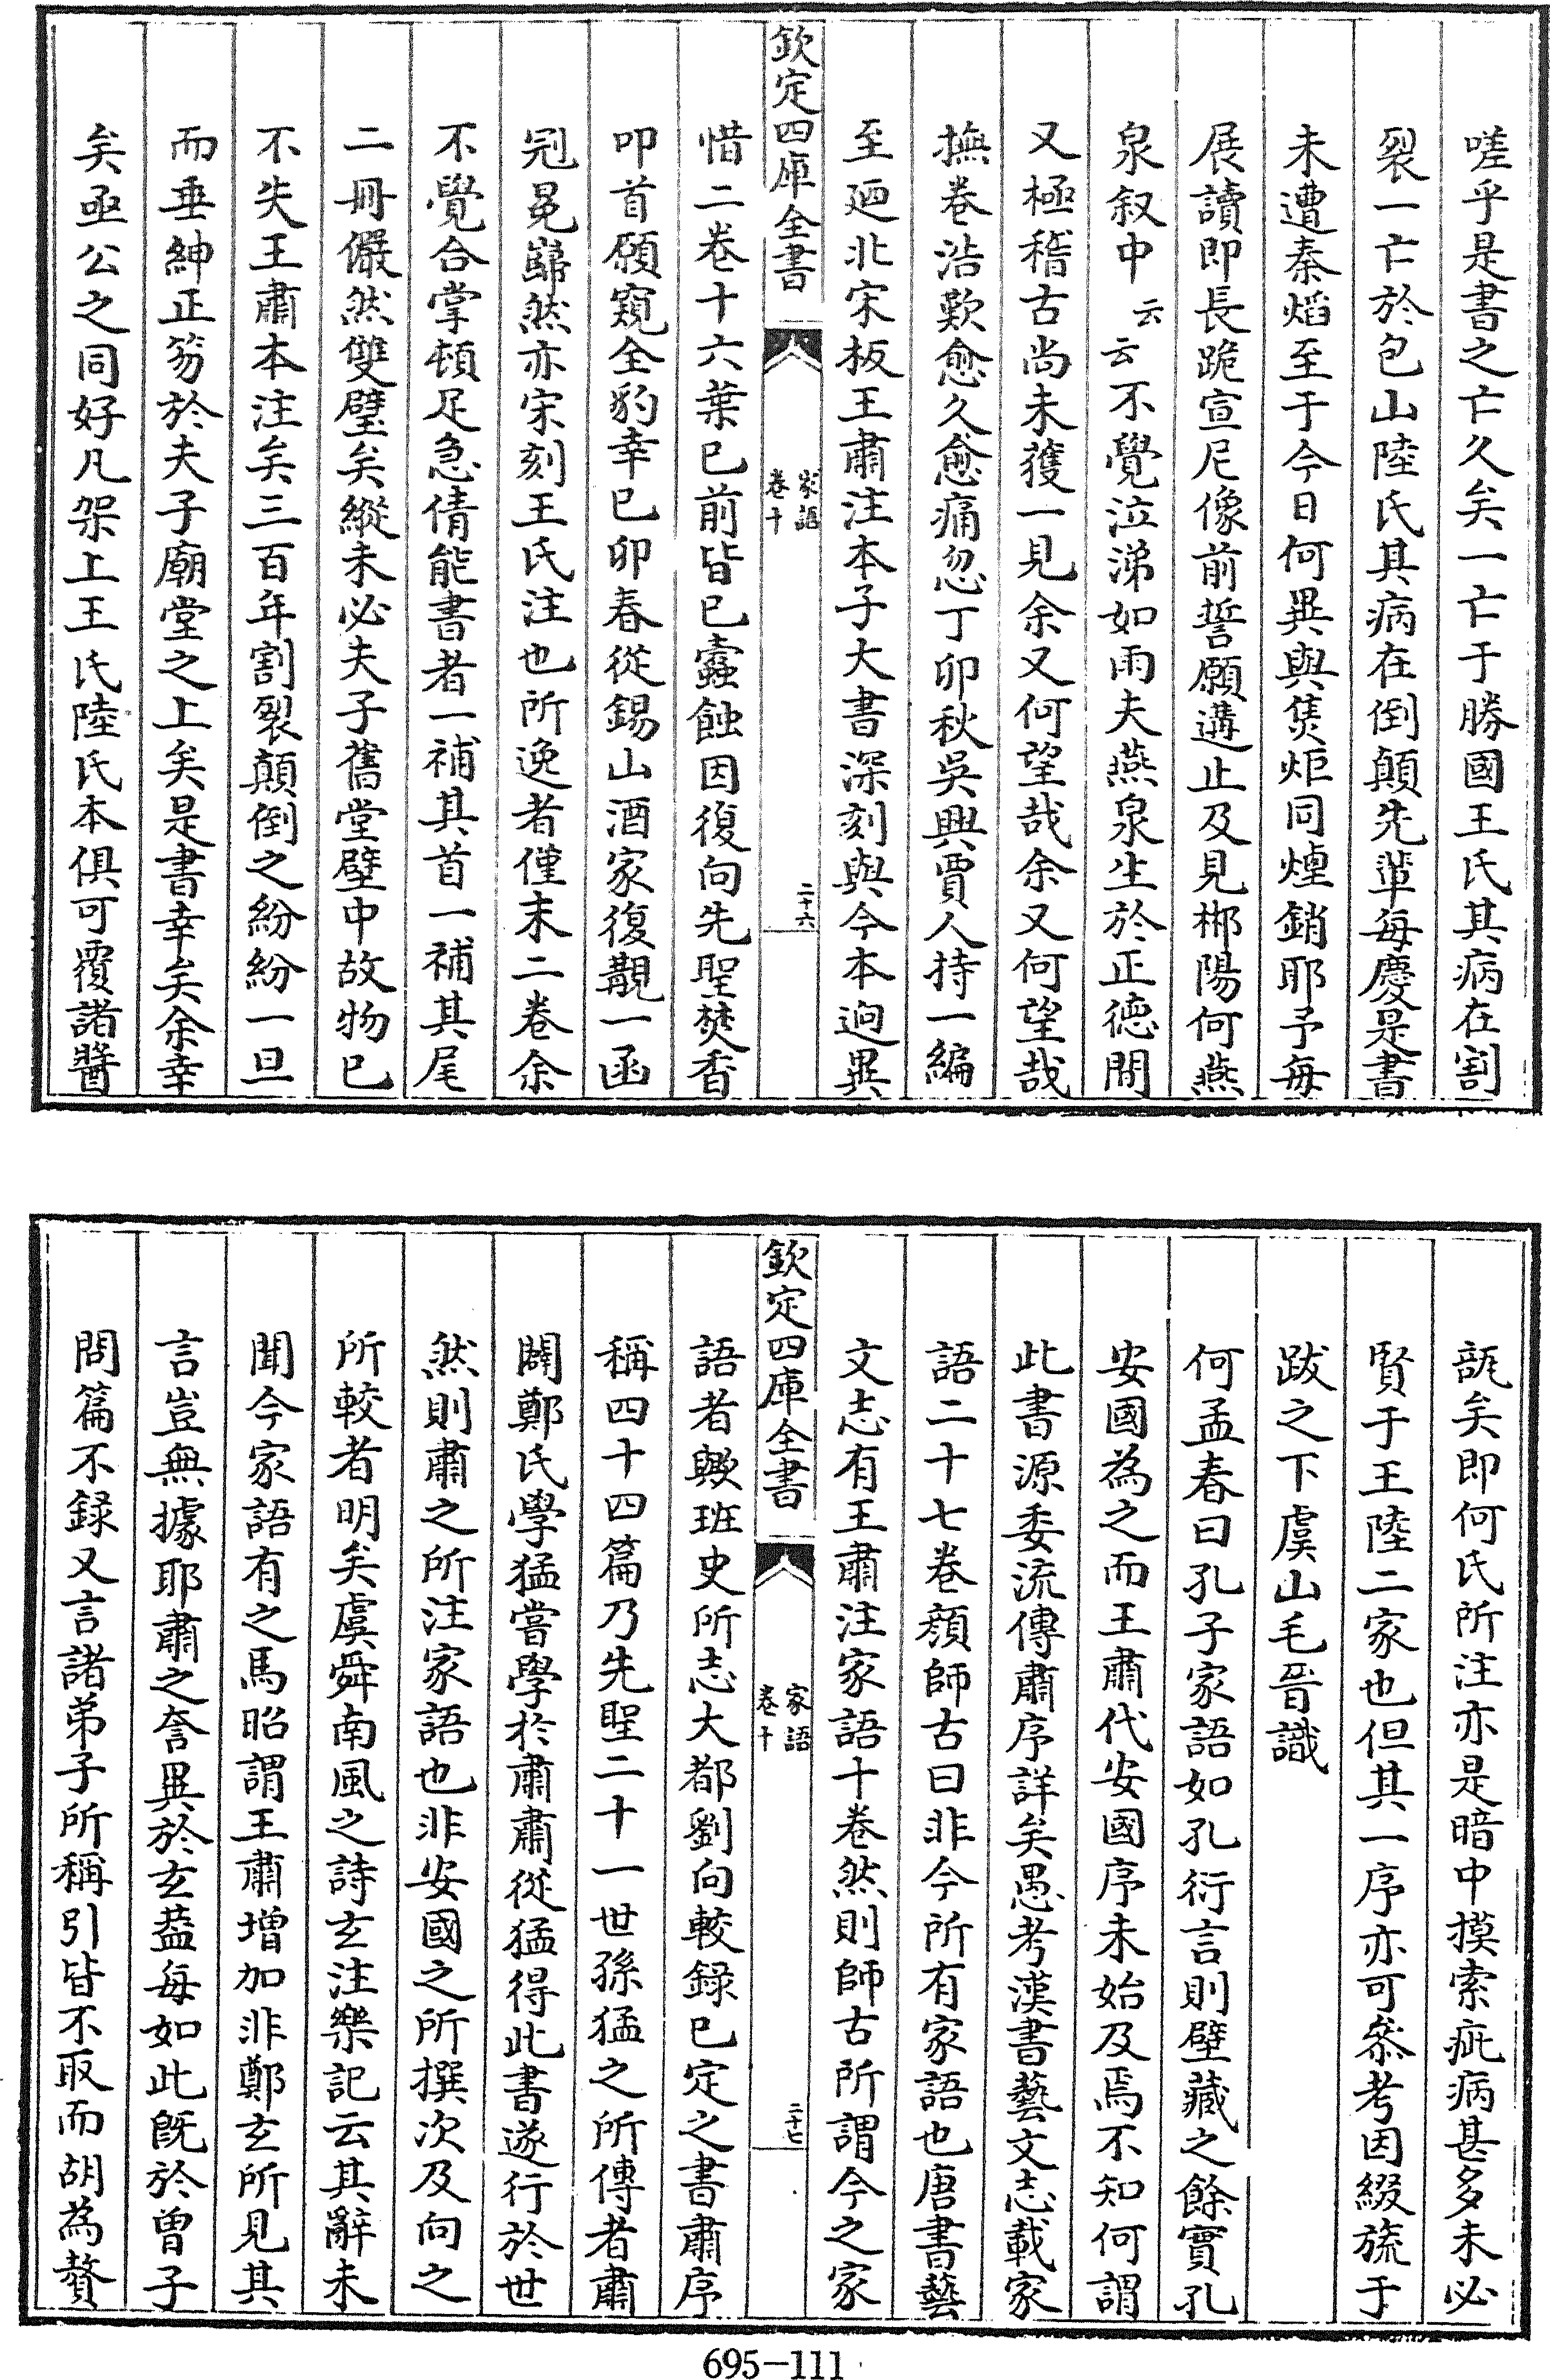 嗟乎是書之亡久矣一亡于勝國王氏其病在割
裂一亡於包山陸氏其病在倒顛先軰每慶是書
未遭秦焰至于今日何異與焦炬同煙銷耶予每
展讀即長跪宣尼像前誓願遘止及見郴陽何燕
泉叙中云云不覺泣涕如雨夫燕泉生於正徳間
又極稽古尚未獲一見余又何望哉余又何望哉
撫卷浩歎愈久愈痛忽丁卯秋吳興賈人持一編
至廼北宋板王肅注本子大書深刻與今本迥異
欽定四庫全書
家語
卷十
二十六
惜二卷十六葉已前皆已蠹蝕因復向先聖焚香
叩首願窺全豹幸已卯春從錫山酒家復覯一函
冠冕巋然亦宋刻王氏注也所逸者僅末二卷余
不覺合掌頓足急倩能書者一補其首一補其尾
二冊儼然雙璧矣縱未必夫子舊堂壁中故物已
不失王肅本注矣三百年割裂顛倒之紛紛一旦
而垂紳正笏於夫子廟堂之上矣是書幸矣余幸
矣亟公之同好凡架上王氏陸氏本俱可覆諸醬
瓿矣即何氏所注亦是暗中摸索疵病甚多未必
賢于王陸二家也但其一序亦可叅考因綴旒于
跋之下虞山毛晉識
何孟春曰孔子家語如孔衍言則壁藏之餘實孔
安國為之而王肅代安國序未始及焉不知何謂
此書源委流傳肅序詳矣愚考漢書藝文志載家
語二十七卷顏師古曰非今所有家語也唐書藝
文志有王肅注家語十卷然則師古所謂今之家
欽定四庫全書
家語
卷十
二十七
語者歟班史所志大都劉向較録已定之書肅序
稱四十四篇乃先聖二十一世孫猛之所傳者肅
闢鄭氏學猛嘗學於肅肅從猛得此書遂行於世
然則肅之所注家語也非安國之所撰次及向之
所較者明矣虞舜南風之詩玄注樂記云其辭未
聞今家語有之馬昭謂王肅增加非鄭玄所見其
言豈無據耶肅之誊異於玄葢每如此旣於曾子
問篇不録又言諸弟子所稱引皆不取而胡為贅
695-111